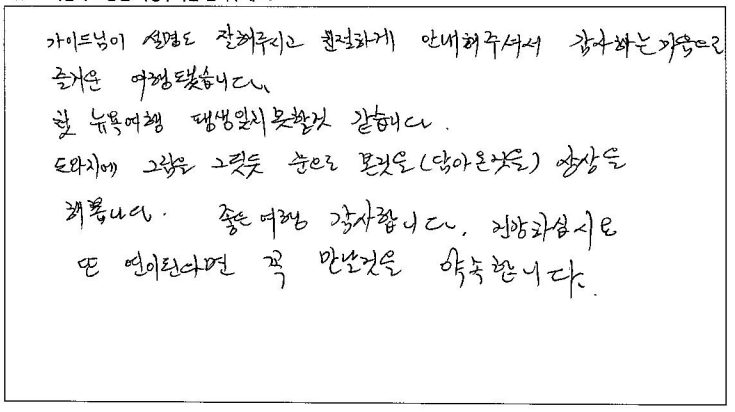 가이드님이 설명도 잘해주시고 친절하게 안내해주셔서 감사하는 마음으로
즐거운 여행됐습니다.
첫 뉴욕여행 평생잊지못할것 같습니다.
도화지에 그림을 그릿듯 눈으로 본것을(담아온것을) 상상을
해봅니다. 좋은여행 감사합니다. 건강하십시요
또 연이된다면 꼭 만날것을 약속합니다.